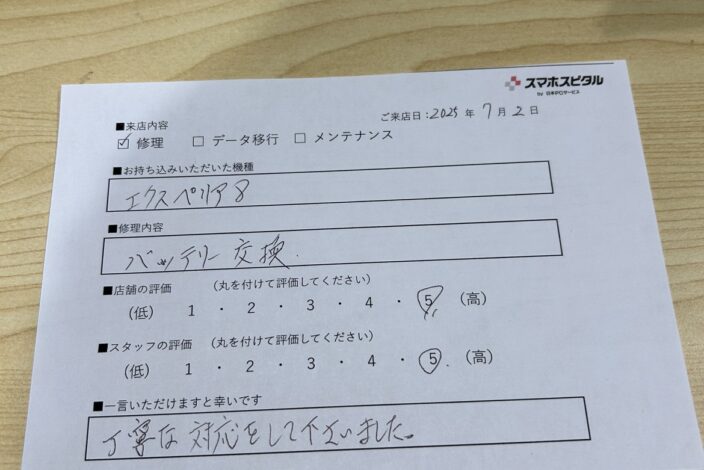 スマホスピタル
by 日本PCサービス
ご来店日：2025 年 7 月 2 日
■来店内容
☑ 修理 □ データ移行 □ メンテナンス
■お持ち込みいただいた機種
エクスペリア8
■修理内容
バッテリー交換.
■店舗の評価 （丸を付けて評価してください）
（低） 1 ・ 2 ・ 3 ・ 4 ・ 5 （高）
■スタッフの評価 （丸を付けて評価してください）
（低） 1 ・ 2 ・ 3 ・ 4 ・ 5 （高）
■一言いただけますと幸いです
丁寧な対応をして下さいました。